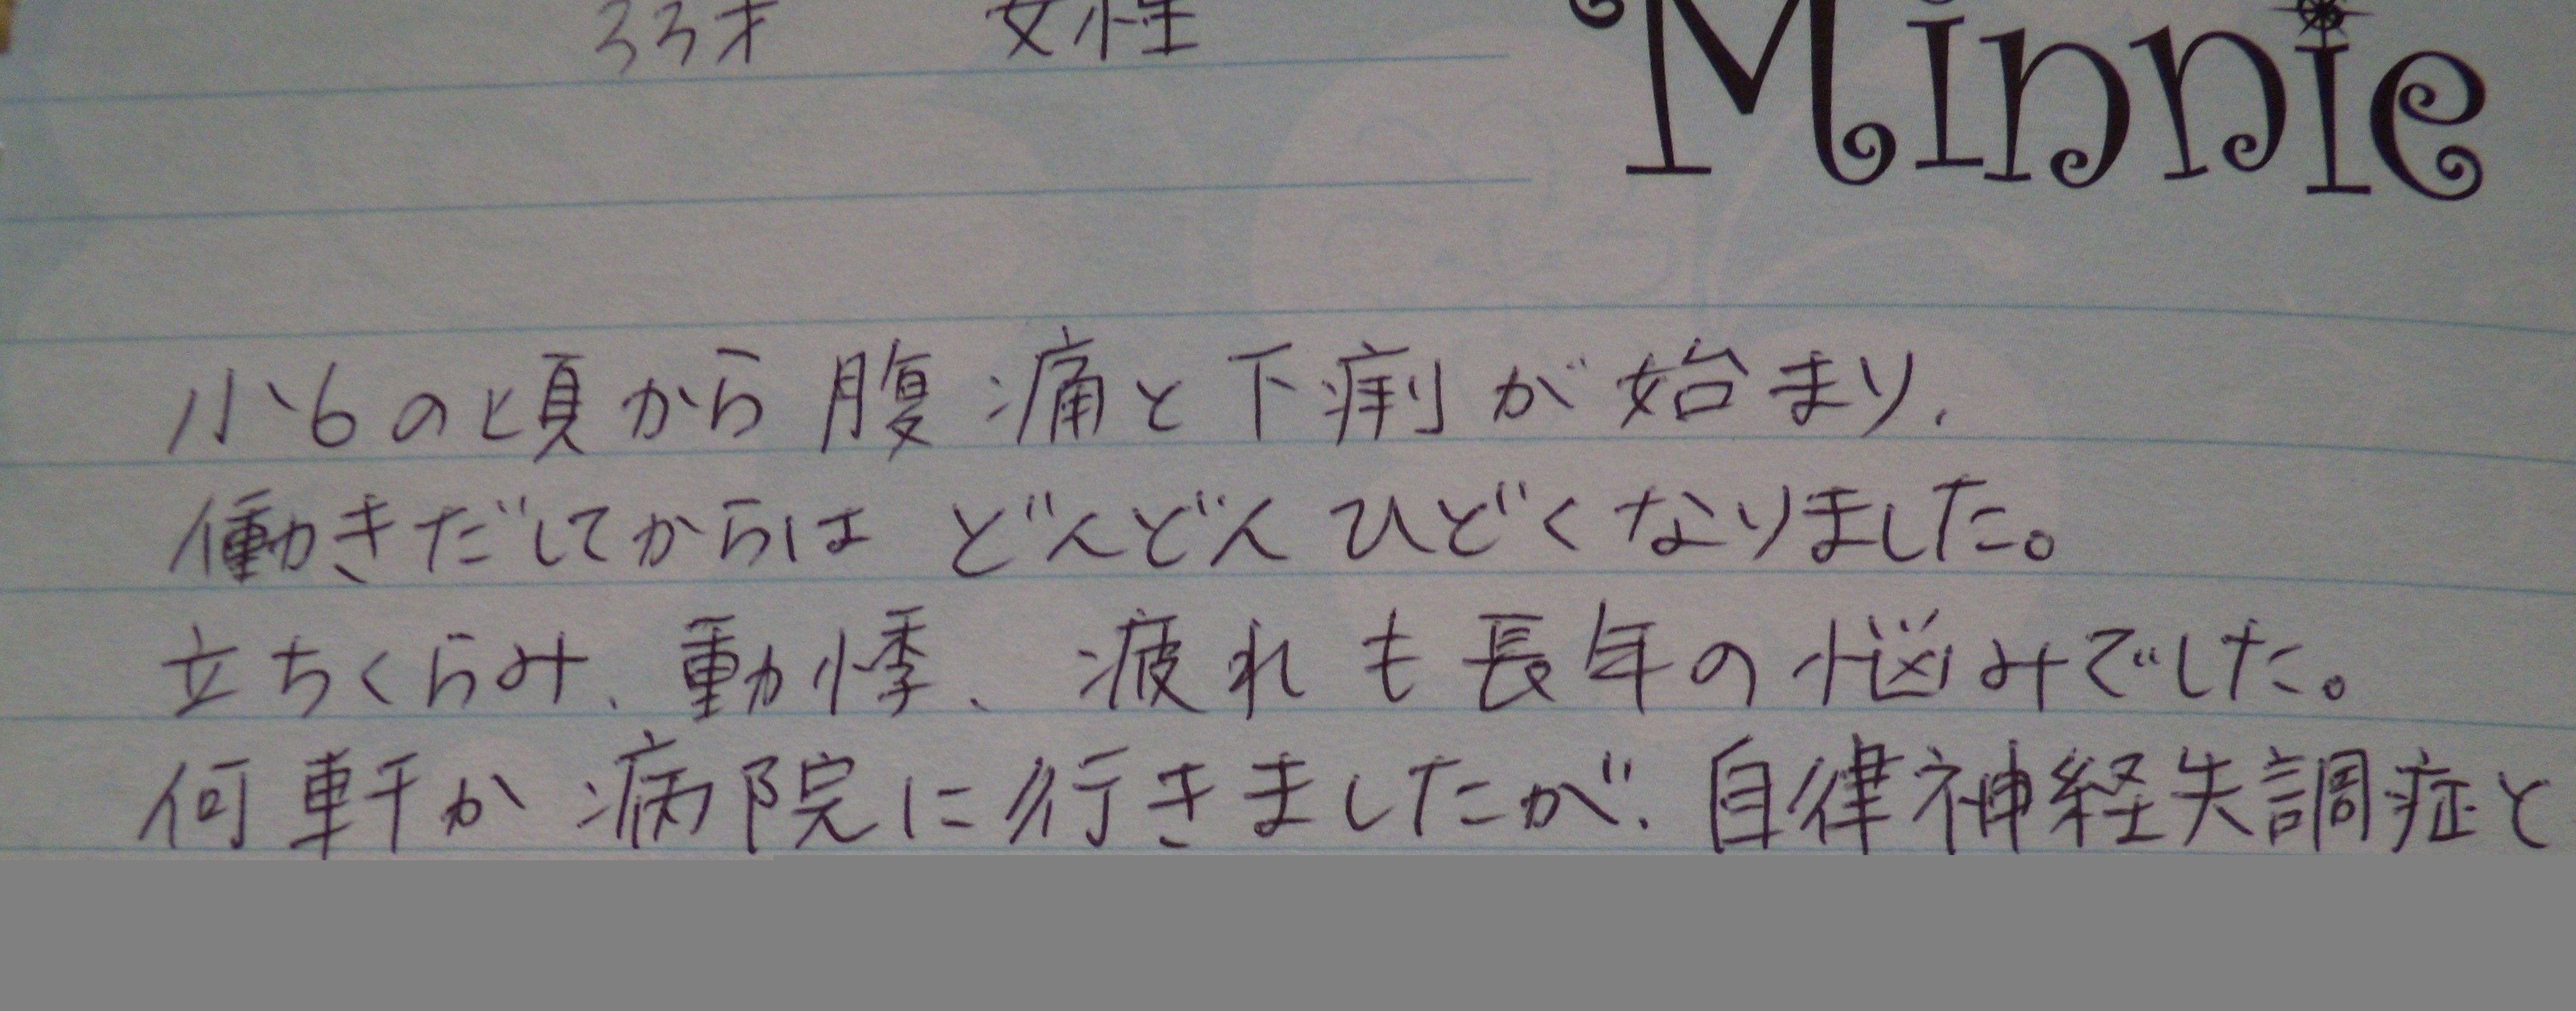 33才 女性
Minnie
小6の頃から腹痛と下痢が始まり、
働きだしてからは どんどん ひどくなりました。
立ちくらみ、動悸、疲れも長年の悩みでした。
何軒か病院に行きましたが、自律神経失調症と